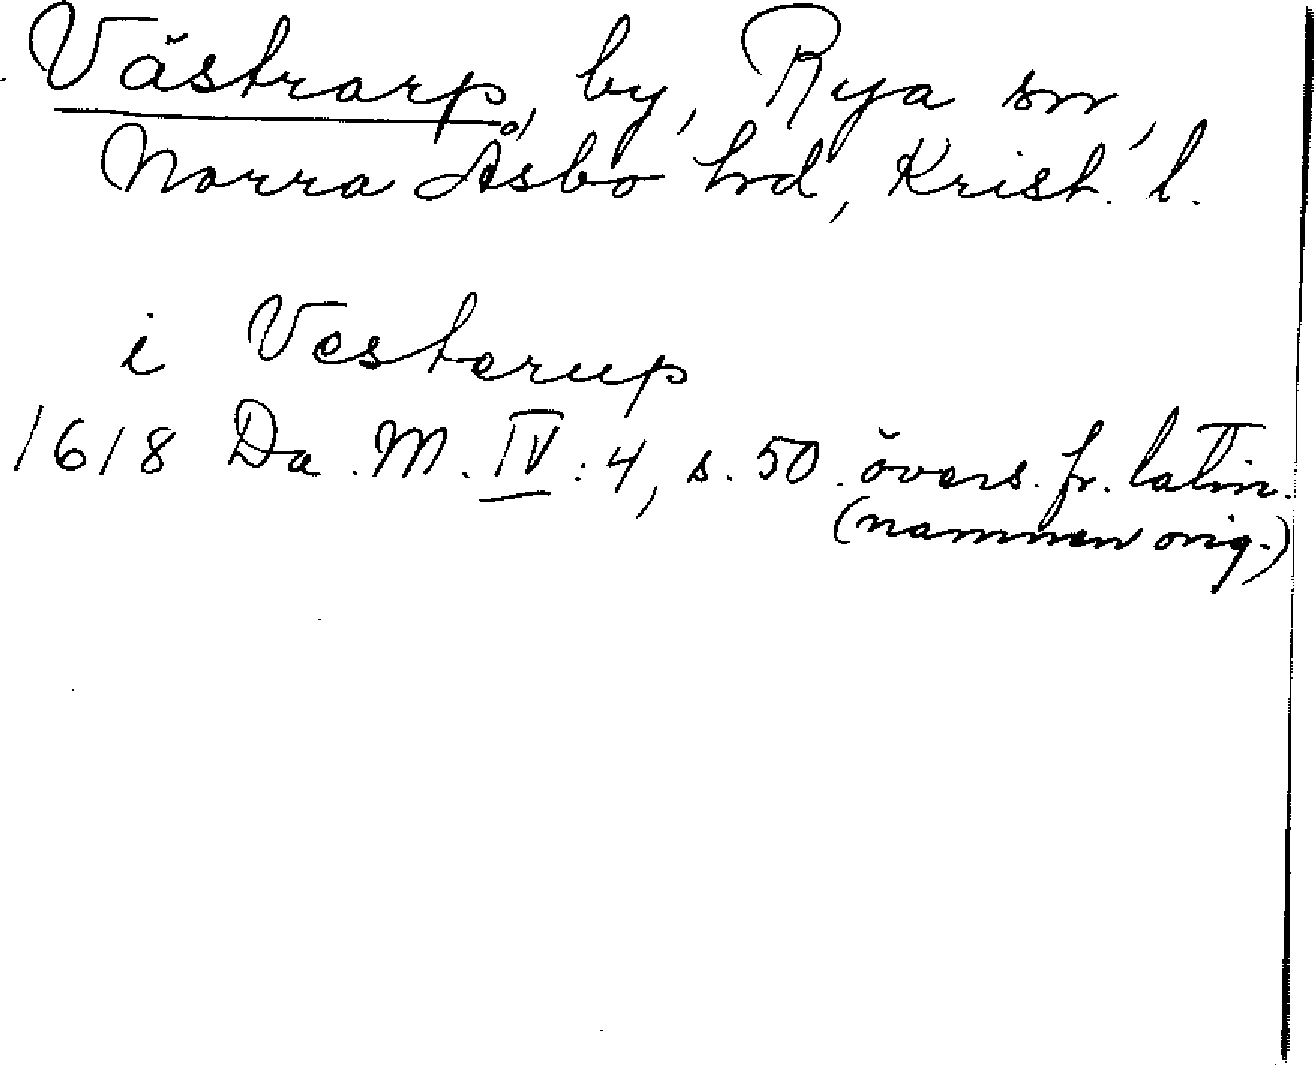 Västrarp, by, Rya sn,
Norra Åsbo hrd, Krist. l.
i Vesterup
1618 Da. M. IV : 4, s. 50. övers. fr. latin.
(namnen orig.)